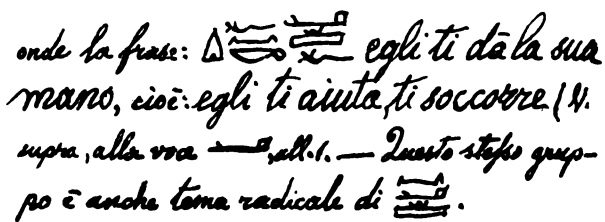 onde la frase: egli ti dà la sua
mano, cioè: egli ti aiuta, ti soccorre (V.
supra, alla voce , all. 1. — Questo stesso grup-
po è anche tema radicale di .